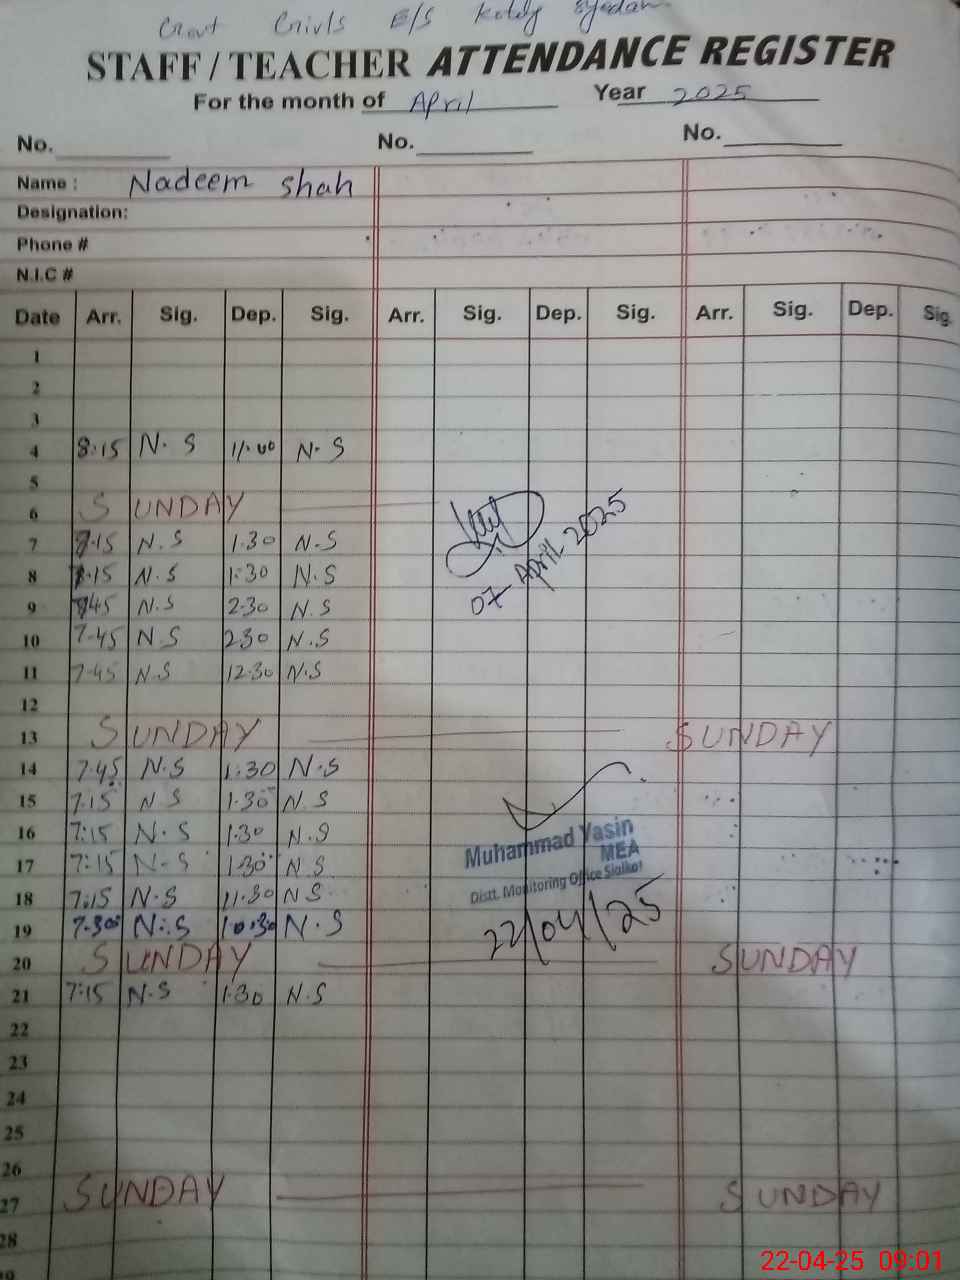 Govt Girls E/S Kotly Syedan
STAFF / TEACHER ATTENDANCE REGISTER
For the month of April Year 2025
No. No. No.
Name : Nadeem Shah
Designation:
Phone #
N.I.C #
Date Arr. Sig. Dep. Sig. Arr. Sig. Dep. Sig. Arr. Sig. Dep. Sig.
1
2
3
4 8:15 N.S 11:00 N.S
5
6 SUNDAY
7 8.15 N.S 1.30 N.S
07 April 2025
8 15 N.S 1:30 N.S
9 45 N.S 2.30 N.S
10 7.45 N.S 2.30 N.S
11 7.45 N.S 12.30 N.S
12
13 SUNDAY SUNDAY
14 7.45 N.S 1.30 N.S
15 7.15 N S 1.30 N.S
16 7:15 N.S 1.30 N.S
Muhammad Yasin
MEA
17 7:15 N-S 1.30 N.S
Distt. Monitoring Office Sialkot
18 7:15 N.S 11.30 N S
19 7.30 N.S 10.30 N.S
22/04/25
20 SUNDAY SUNDAY
21 7:15 N.S 1.30 N.S
22
23
24
25
26
27 SUNDAY SUNDAY
28
22-04-25 09:01